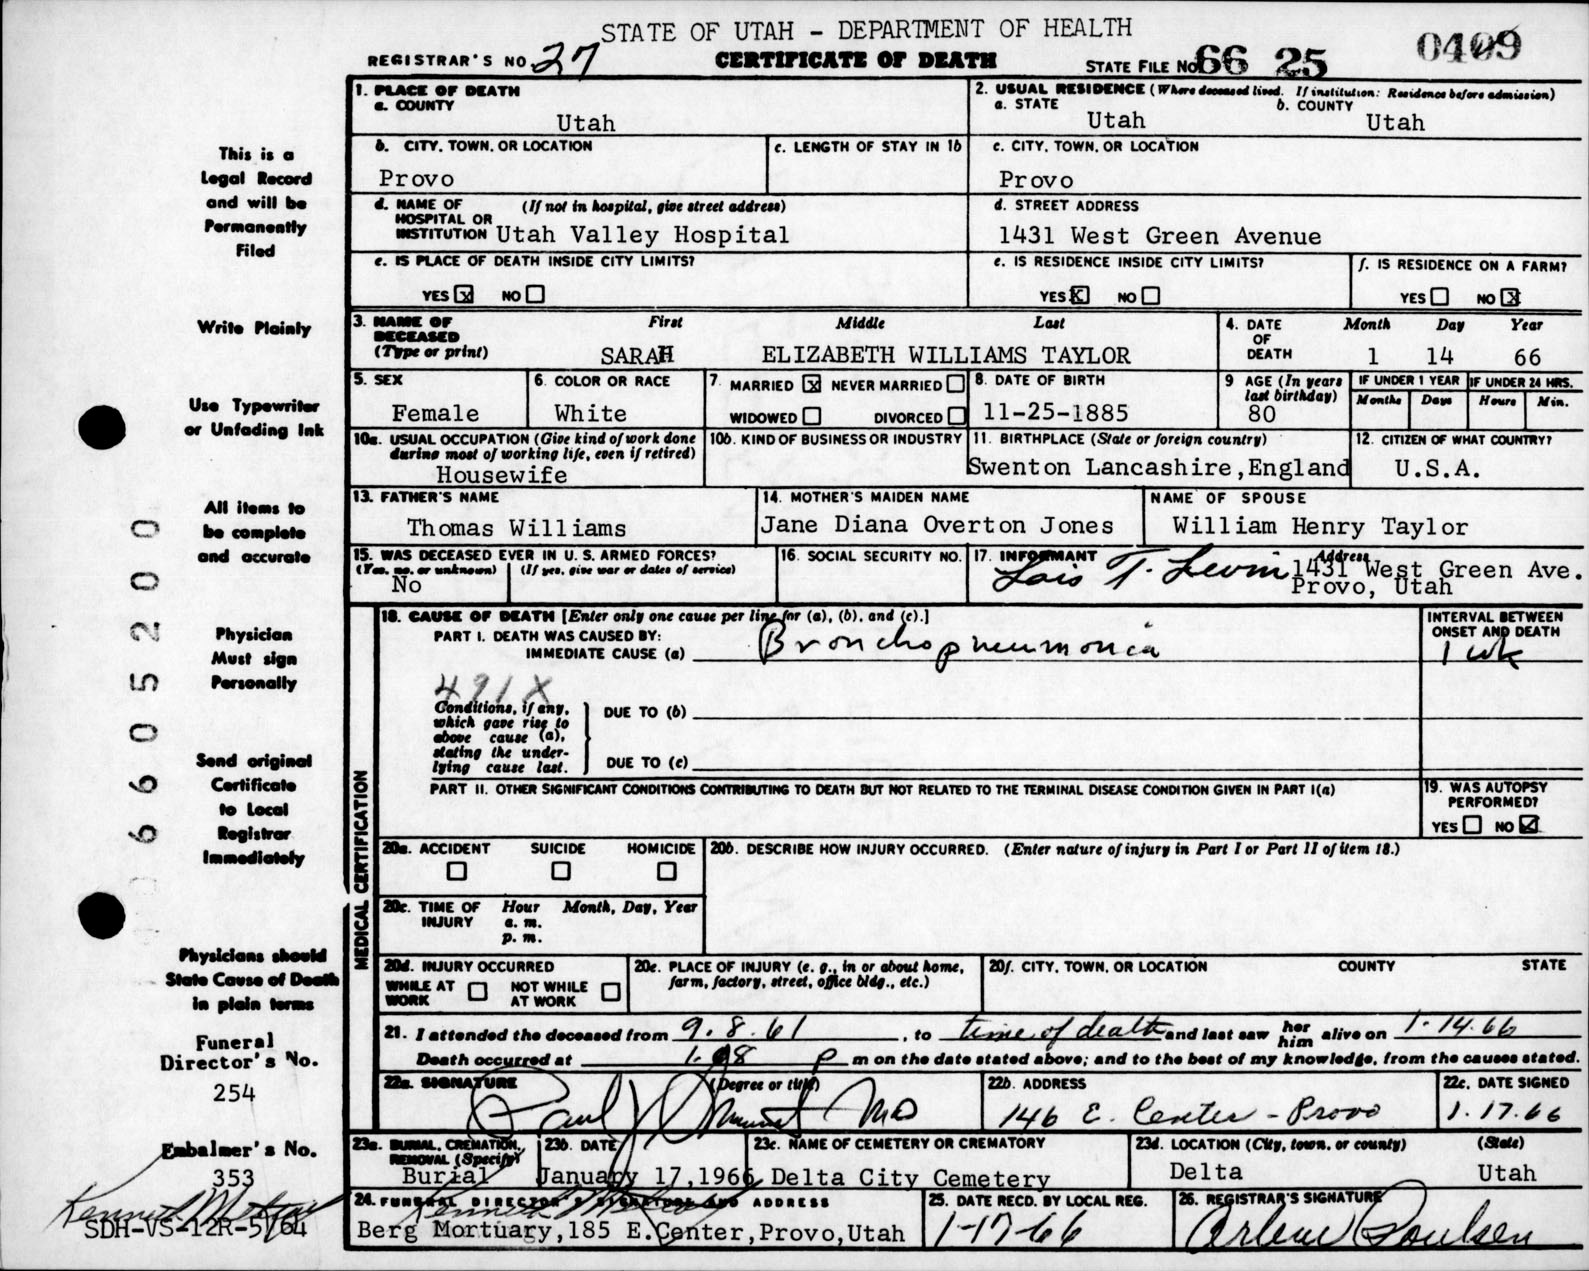 STATE OF UTAH - DEPARTMENT OF HEALTH
REGISTRAR'S NO. 27 CERTIFICATE OF DEATH STATE FILE NO. 66 25 0409
This is a
Legal Record
and will be
Permanently
Filed
Write Plainly
Use Typewriter
or Unfading Ink
All items to
be complete
and accurate
Physician
Must sign
Personally
Send original
Certificate
to Local
Registrar
Immediately
Physicians should
State Cause of Death
in plain terms
Funeral
Director's No.
254
Embalmer's No.
353
SDH-VS-12R-5/64
6605200
1. PLACE OF DEATH
a. COUNTY
Utah
2. USUAL RESIDENCE (Where deceased lived. If institution: Residence before admission)
a. STATE b. COUNTY
Utah Utah
b. CITY, TOWN, OR LOCATION
Provo
c. LENGTH OF STAY IN 1b
c. CITY, TOWN, OR LOCATION
Provo
d. NAME OF (If not in hospital, give street address)
HOSPITAL OR
INSTITUTION Utah Valley Hospital
d. STREET ADDRESS
1431 West Green Avenue
e. IS PLACE OF DEATH INSIDE CITY LIMITS?
YES X NO
e. IS RESIDENCE INSIDE CITY LIMITS?
YES X NO
f. IS RESIDENCE ON A FARM?
YES NO X
3. NAME OF First Middle Last
DECEASED
(Type or print) SARAH ELIZABETH WILLIAMS TAYLOR
4. DATE Month Day Year
OF
DEATH 1 14 66
5. SEX
Female
6. COLOR OR RACE
White
7. MARRIED X NEVER MARRIED
WIDOWED DIVORCED
8. DATE OF BIRTH
11-25-1885
9 AGE (In years
last birthday)
80
IF UNDER 1 YEAR IF UNDER 24 HRS.
Months Days Hours Min.
10a. USUAL OCCUPATION (Give kind of work done
during most of working life, even if retired)
Housewife
10b. KIND OF BUSINESS OR INDUSTRY
11. BIRTHPLACE (State or foreign country)
Swenton Lancashire,England
12. CITIZEN OF WHAT COUNTRY?
U.S.A.
13. FATHER'S NAME
Thomas Williams
14. MOTHER'S MAIDEN NAME
Jane Diana Overton Jones
NAME OF SPOUSE
William Henry Taylor
15. WAS DECEASED EVER IN U. S. ARMED FORCES?
(Yes, no, or unknown) (If yes, give war or dates of service)
No
16. SOCIAL SECURITY NO.
17. INFORMANT Address
Lois T. Levin 1431 West Green Ave.
Provo, Utah
MEDICAL CERTIFICATION
18. CAUSE OF DEATH [Enter only one cause per line for (a), (b), and (c).]
PART I. DEATH WAS CAUSED BY:
IMMEDIATE CAUSE (a) Bronchopneumonia
INTERVAL BETWEEN
ONSET AND DEATH
1 wk
491X
Conditions, if any,
which gave rise to
above cause (a),
stating the under-
lying cause last.
DUE TO (b)
DUE TO (c)
PART II. OTHER SIGNIFICANT CONDITIONS CONTRIBUTING TO DEATH BUT NOT RELATED TO THE TERMINAL DISEASE CONDITION GIVEN IN PART I(a)
19. WAS AUTOPSY
PERFORMED?
YES NO
20a. ACCIDENT SUICIDE HOMICIDE
20b. DESCRIBE HOW INJURY OCCURRED. (Enter nature of injury in Part I or Part II of item 18.)
20c. TIME OF Hour Month, Day, Year
INJURY a. m.
p. m.
20d. INJURY OCCURRED
WHILE AT NOT WHILE
WORK AT WORK
20e. PLACE OF INJURY (e. g., in or about home,
farm, factory, street, office bldg., etc.)
20f. CITY, TOWN, OR LOCATION COUNTY STATE
21. I attended the deceased from 9.8.61, to time of death and last saw her him alive on 1.14.66
Death occurred at 1:08 p m on the date stated above; and to the best of my knowledge, from the causes stated.
22a. SIGNATURE (Degree or title)
Paul MD
22b. ADDRESS
146 E. Center - Provo
22c. DATE SIGNED
1.17.66
23a. BURIAL, CREMATION,
REMOVAL (Specify)
Burial
23b. DATE
January 17,1966
23c. NAME OF CEMETERY OR CREMATORY
Delta City Cemetery
23d. LOCATION (City, town, or county) (State)
Delta Utah
24. FUNERAL DIRECTOR'S SIGNATURE AND ADDRESS
Berg Mortuary,185 E.Center,Provo,Utah
25. DATE RECD. BY LOCAL REG.
1-17-66
26. REGISTRAR'S SIGNATURE
Arlene Poulsen